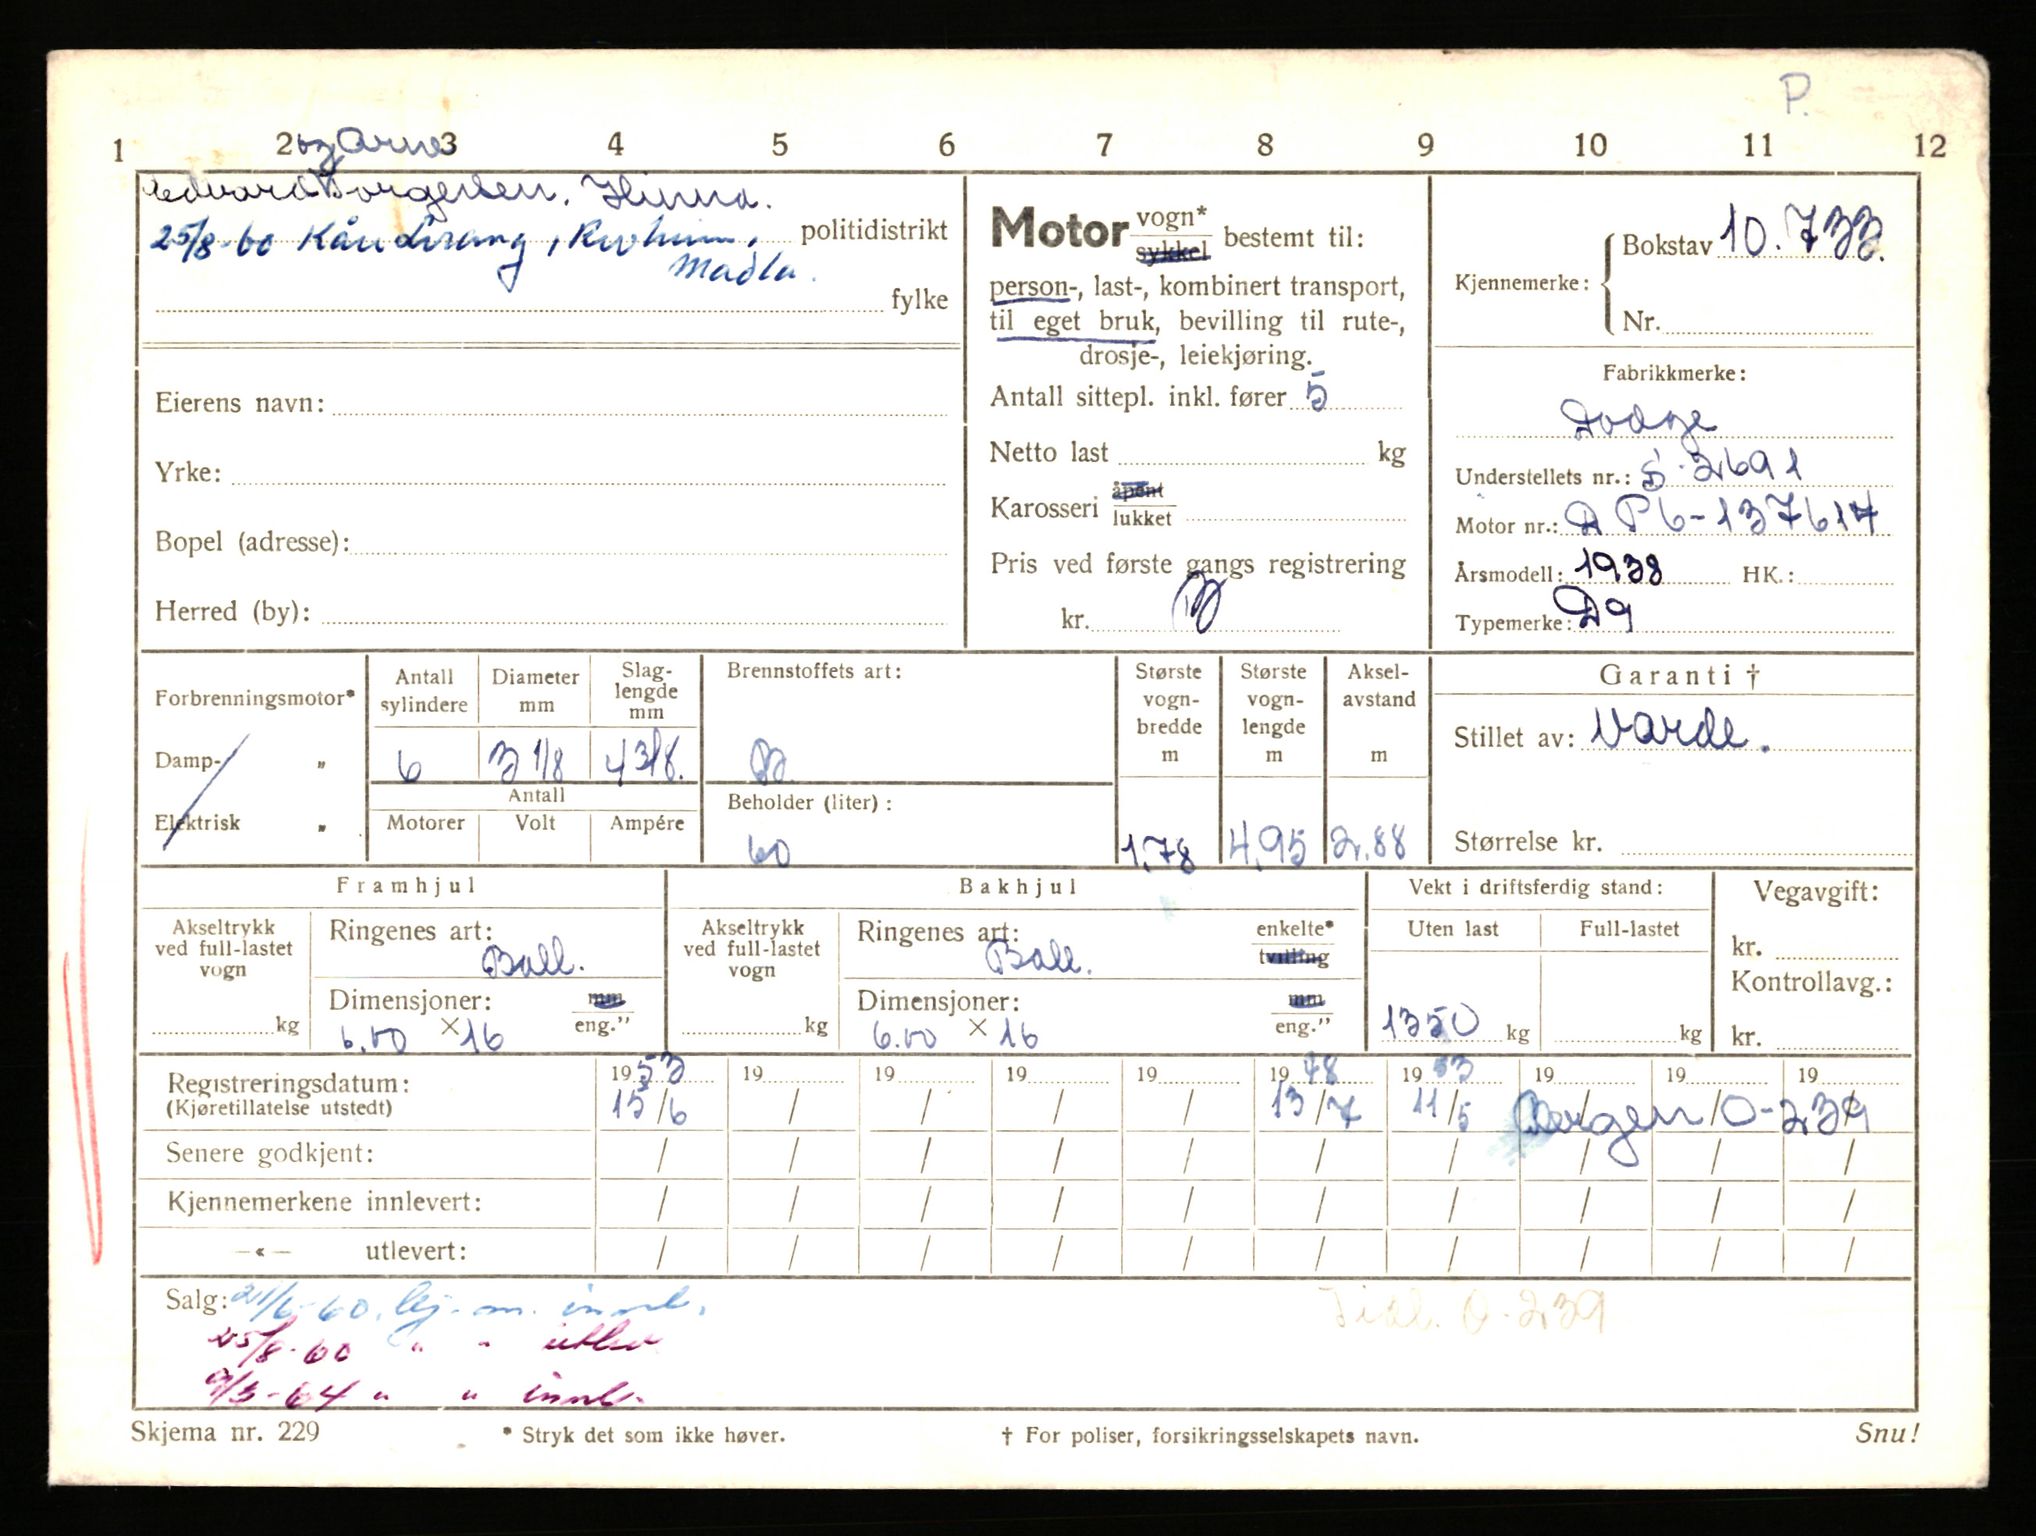 P.
1 2 3 4 5 6 7 8 9 10 11 12
Arne
Edvard Borgersen. Hinna.
25/8-60 politidistrikt
Madla.
fylke
Eierens navn:
Yrke:
Bopel (adresse):
Herred (by):
Motor vogn*
sykkel
bestemt til:
person-, last-, kombinert transport,
til eget bruk, bevilling til rute-,
drosje-, leiekjøring.
Antall sittepl. inkl. fører 5
Netto last kg
Karosseri åpent
lukket
Pris ved første gangs registrering
kr. B
Kjennemerke: Bokstav 10.733.
Nr.
Fabrikkmerke:
Dodge
Understellets nr.: S. 2691
Motor nr.: D P6-137617
Årsmodell: 1938 HK.:
Typemerke: D9
Forbrenningsmotor*
Damp- "
Elektrisk "
Antall sylindere
6
Diameter mm
3 1/8
Slaglengde mm
4 3/8.
Antall
Motorer Volt Ampére
Brennstoffets art:
B
Beholder (liter):
60
Største vognbredde m
1,78
Største vognlengde m
4,95
Akselavstand m
2.88
Garanti †
Stillet av: Varde.
Størrelse kr.
Framhjul
Akseltrykk ved full-lastet vogn
kg
Ringenes art:
Ball.
Dimensjoner: mm
6.00 × 16 eng."
Bakhjul
Akseltrykk ved full-lastet vogn
kg
Ringenes art: enkelte*
Ball. tvilling
Dimensjoner: mm
6.00 × 16 eng."
Vekt i driftsferdig stand:
Uten last Full-lastet
1350 kg kg
Vegavgift:
kr.
Kontrollavg.:
kr.
Registreringsdatum: 1953 19 19 19 19 1948 1953 19 19 19
(Kjøretillatelse utstedt) 15/6 / / / / 13/7 11/5 Bergen O-239
Senere godkjent: / / / / / / / / / /
Kjennemerkene innlevert: / / / / / / / / / /
—«— utlevert: / / / / / / / / / /
Salg: 21/6-60. kj. m. innl.
25/8-60 " " utlev
9/3-64 " " innl.
Tidl. O-239
Skjema nr. 229 * Stryk det som ikke høver. † For poliser, forsikringsselskapets navn. Snu!